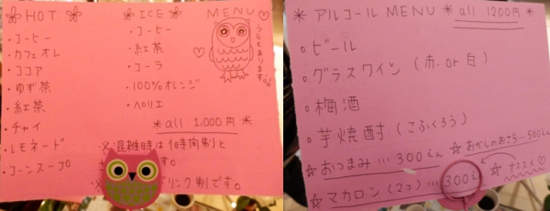 HOT
・コーヒー
・カフェオレ
・ココア
・ゆず茶
・紅茶
・チャイ
・レモネード
・コーンスープ
ICE
・コーヒー
・紅茶
・コーラ
・100%オレンジ
・ペリエ
*all 1,000円*
※混雑時は1時間制と
す。
リンク制です。
MENU
うらもあります。
*アルコールMENU* all 1200円
・ビール
・グラスワイン(赤.or白)
・梅酒
・芋焼酎(こふくろう)
☆おつまみ…300えん
☆おかしのおさら…500えん
☆マカロン(2コ)…300